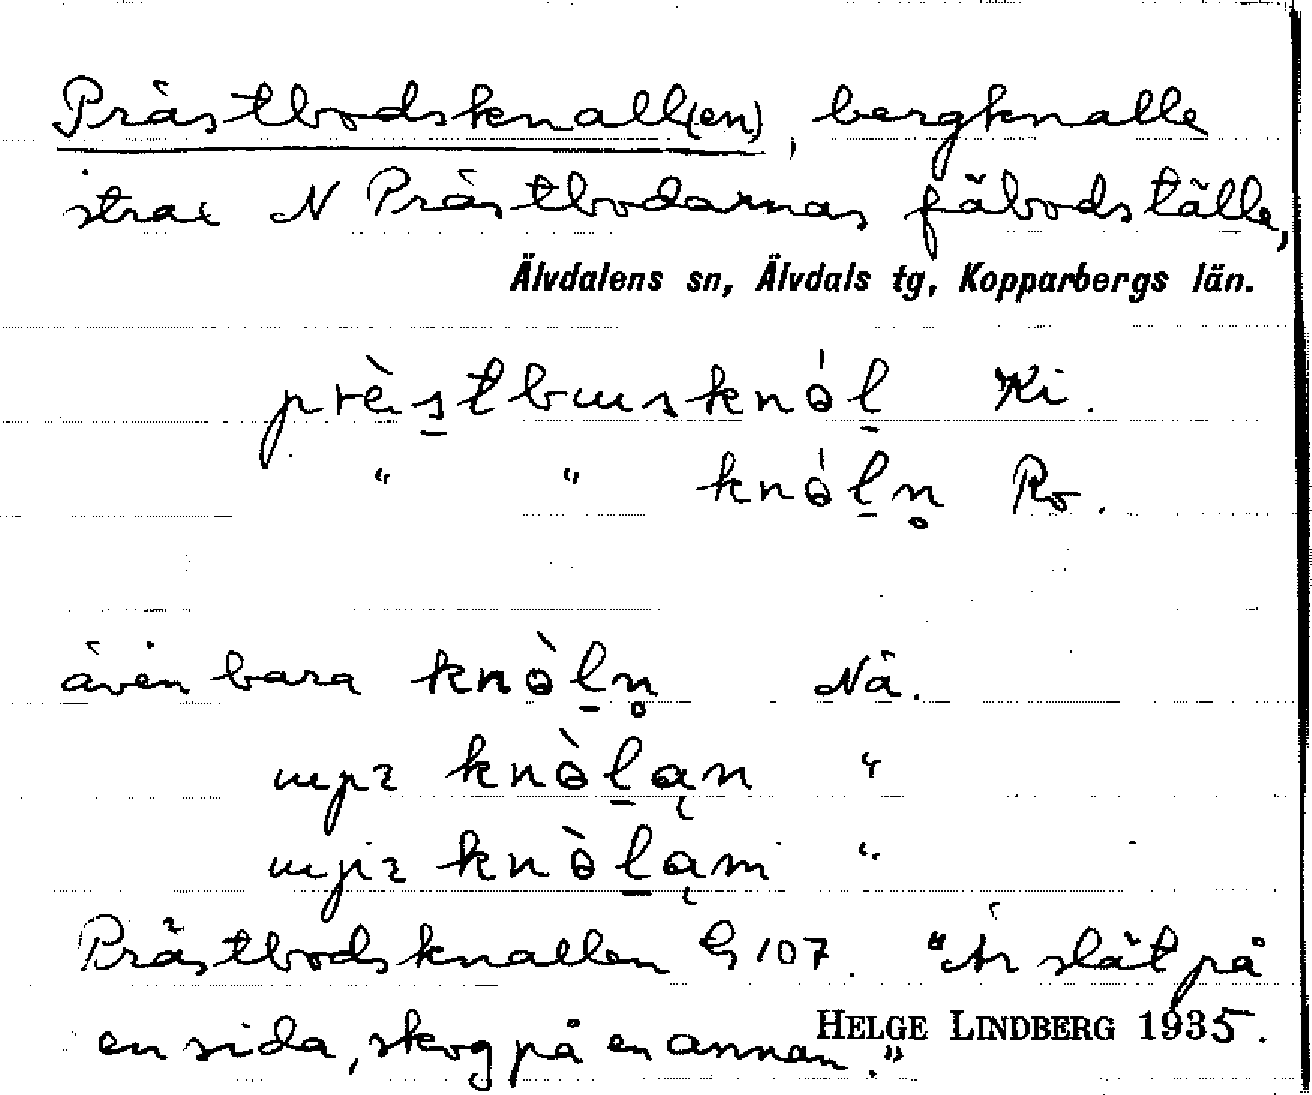 Prästbodsknall(en), bergknalle
strax N Prästbodarnas fäbodställe,
Älvdalens sn, Älvdals tg, Kopparbergs län.
prὲstbusknól Ki.
" " knóln̥ Ro.
även bara knòln̥ Nä.
upɪ knòląn "
upiɪ knòląm "
Prästbodsknallen G 107. "Är slät på
en sida, skog på en annan."
HELGE LINDBERG 1935.